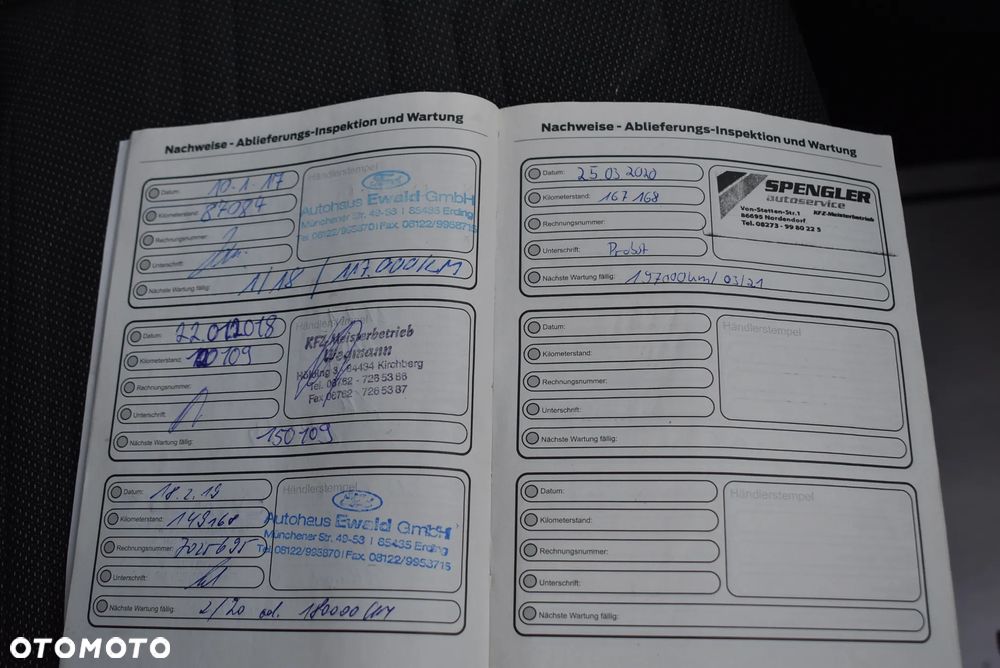 Nachweise - Ablieferungs-Inspektion und Wartung
Datum: 10.1.17
Kilometerstand: 87084
Rechnungsnummer:
Unterschrift:
Nächste Wartung fällig: 1/18 / 117.000KM
Händlerstempel
Ford
Autohaus Ewald GmbH
Münchener Str. 49-53 | 85435 Erding
Tel. 08122/995870 | Fax. 08122/9953715
Datum: 22.01.2018
Kilometerstand: 120109
Rechnungsnummer:
Unterschrift:
Nächste Wartung fällig: 150109
Händlerstempel
KFZ-Meisterbetrieb
Wegmann
84434 Kirchberg
Tel. 08762 - 726 53 86
Fax 08762 - 726 53 87
Datum: 18.2.19
Kilometerstand: 149168
Rechnungsnummer: 7025695
Unterschrift:
Nächste Wartung fällig: 2/20 od. 180000 KM
Händlerstempel
Ford
Autohaus Ewald GmbH
Münchener Str. 49-53 | 85435 Erding
Tel. 08122/995870 | Fax. 08122/9953715
Nachweise - Ablieferungs-Inspektion und Wartung
Datum: 25.03.2020
Kilometerstand: 167 168
Rechnungsnummer:
Unterschrift: Probst
Nächste Wartung fällig: 197000km/ 03/21
SPENGLER
autoservice
Von-Stetten-Str.1 KFZ-Meisterbetrieb
86695 Nordendorf
Tel. 08273 - 99 80 22 5
Datum:
Kilometerstand:
Rechnungsnummer:
Unterschrift:
Nächste Wartung fällig:
Händlerstempel
Datum:
Kilometerstand:
Rechnungsnummer:
Unterschrift:
Nächste Wartung fällig:
Händlerstempel
OTOMOTO